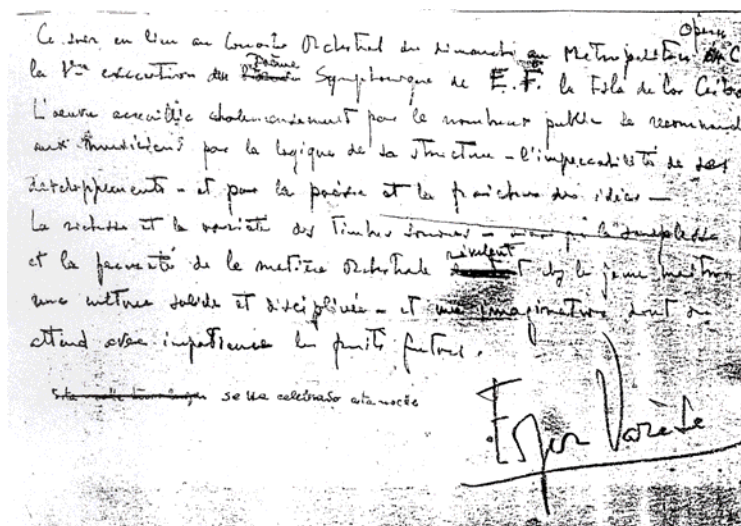 Opera
Ce soir eu lieu au Concerto Orchestral du dimanche au Metropolitan
la 1ère exécution du Poème Symphonique de E. F. la Isla de los Ceibos
L'oeuvre accueillie chaleureusement par le nombreux public se recommande
aux musiciens par la logique de sa structure – l'impeccabilité de ses
développements – et par la poésie et la fraîcheur des idées –
La richesse et la variété des timbres sonores – ainsi que la souplesse
et la de la matière orchestrale révèlent chez le jeune maître
une culture solide et disciplinée – et une imagination dont on
attend avec impatience les fruits futurs.
se ha celebrado esta noche
Edgar Varèse